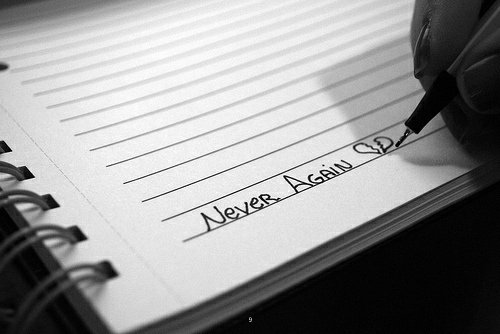 Never Again
9